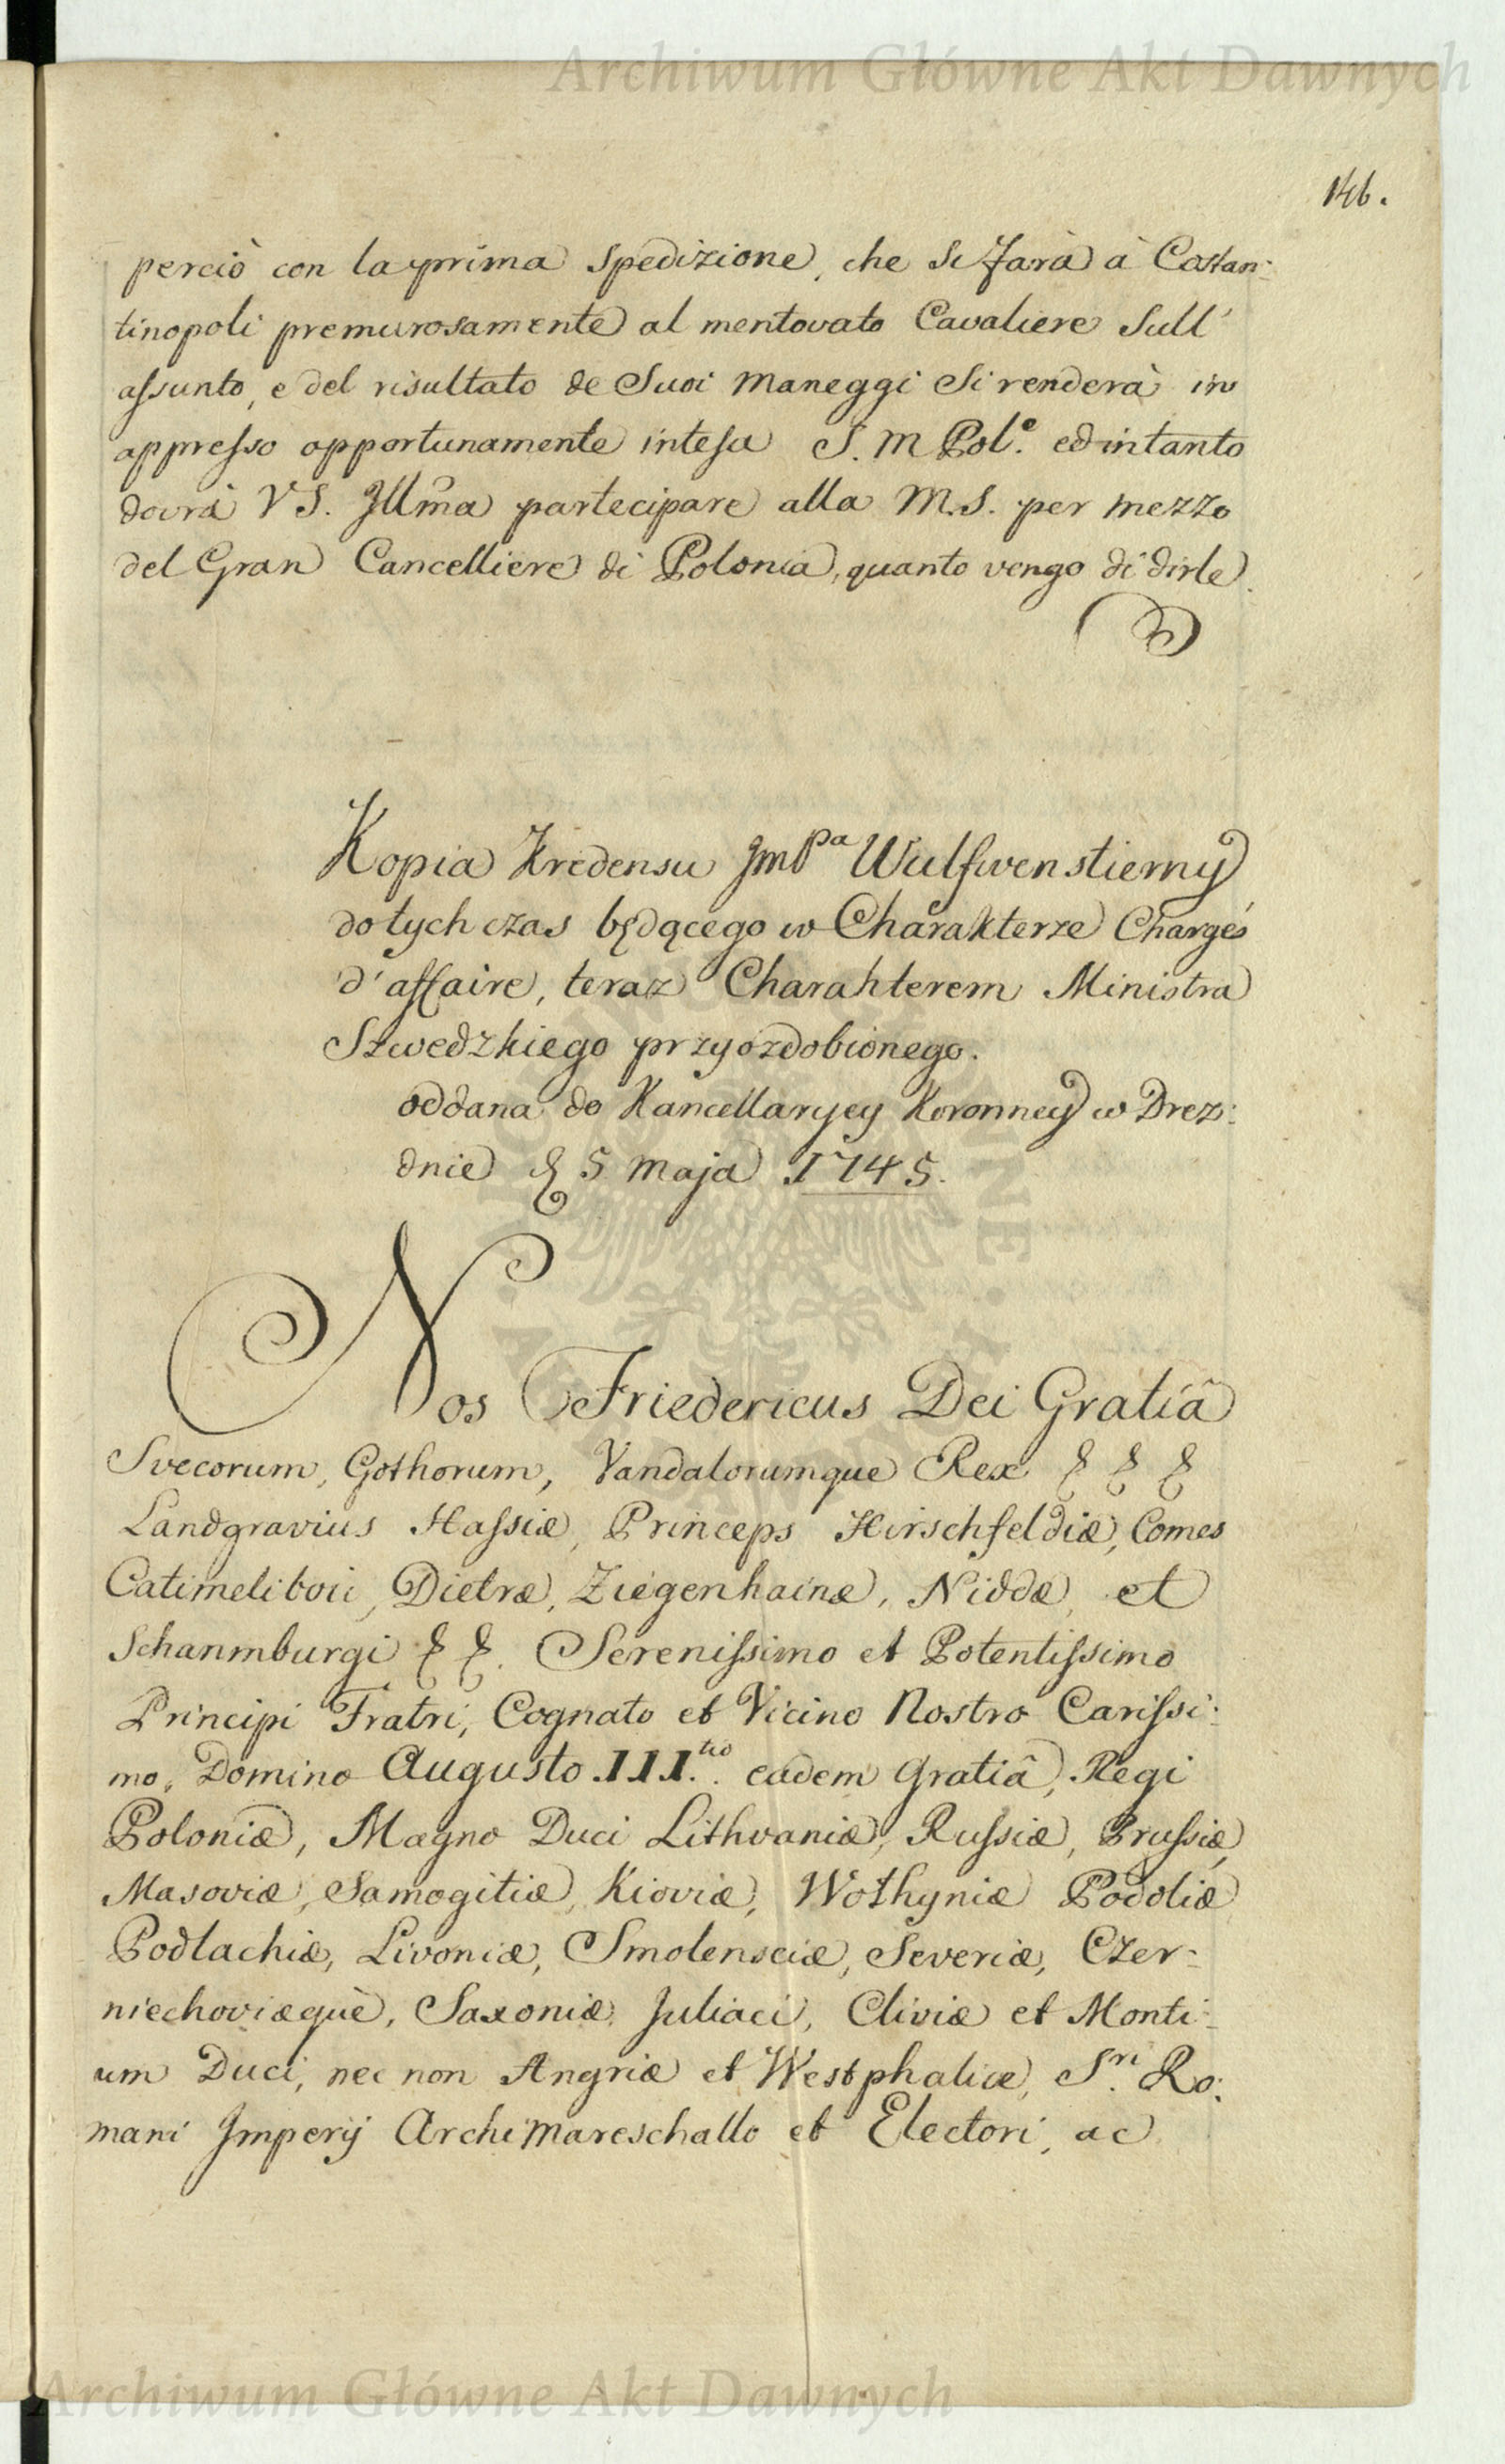 Archiwum Główne Akt Dawnych
146.
perciò con la prima Spedizione, che Si farà à Costan:
tinopoli premurosamente al mentovato Cavaliere Sull'
assunto, e del risultato de Suoi maneggi Si renderà in
appresso opportunamente intesa S. M Pol.ª ed intanto
dovrà V S. Illma partecipare alla M. S. per mezzo
del Gran Cancelliere di Polonia, quanto vengo di dirle.
Kopia Kredensu JmPa Wulfwenstierny
dotychczas będącego w Charakterze Chargés
d'affaire, teraz Charakterem Ministra
Szwedzkiego przyozdobionego.
oddana do Kancellaryey Koronney w Drez:
dnie d 5 maja 1745.
Nos Friedericus Dei Gratiâ
Svecorum, Gothorum, Vandalorumque Rex & & &
Landgravius Hassiæ, Princeps Hirschfeldiæ, Comes
Catimeliboii, Dietræ, Ziegenhainæ, Niddæ, et
Schanmburgi & &. Serenissimo et Potentissimo
Principi Fratri, Cognato et Vicino Nostro Carissi:
mo, Domino Augusto III.tio eadem Gratiâ, Regi
Poloniæ, Magno Duci Lithvaniæ, Russiæ, Prussiæ,
Masoviæ, Samogitiæ, Kioviæ, Wolhyniæ Podoliæ
Podlachiæ, Livoniæ, Smolensciæ, Severiæ, Czer-
niechoviæquè, Saxoniæ, Juliaci, Cliviæ et Monti-
um Duci, nec non Angriæ et Westphaliæ, S.ri Ro:
mani Imperij Archimareschallo et Electori, ac
Archiwum Główne Akt Dawnych